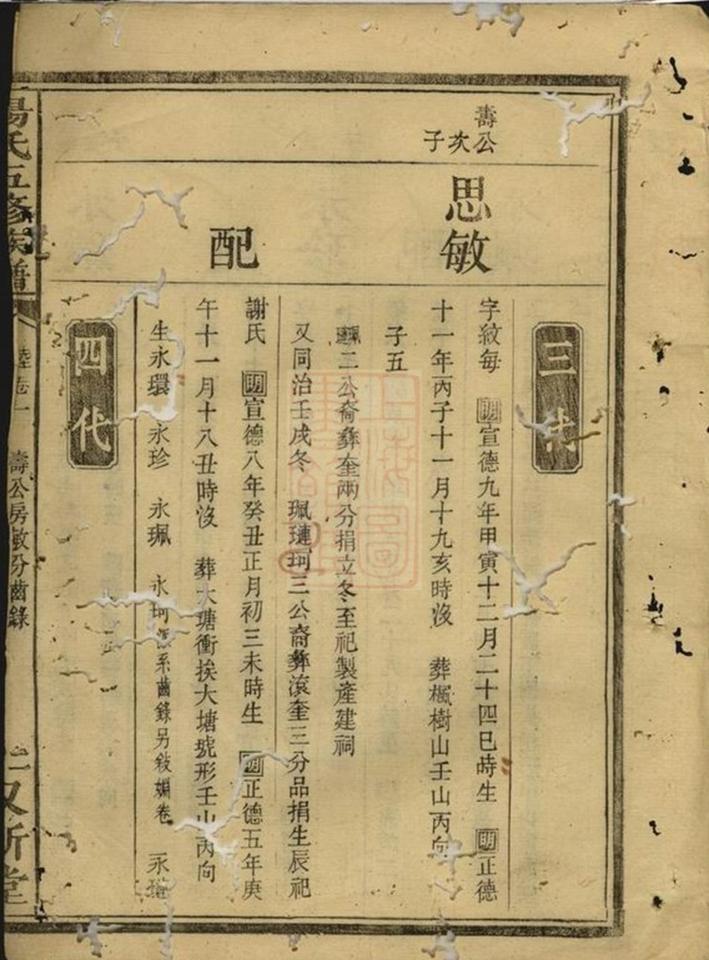 壽公次子
三代
思敏
字紋每 明宣德九年甲寅十二月二十四巳時生 明正德
十一年丙子十一月十九亥時沒 葬楓樹山壬山丙向
子五
二公裔彝奎兩分捐立冬至祀製產建祠
又同治壬戌冬 珮璉珂三公裔彝滾奎三分品捐生辰祀
配
謝氏 明宣德八年癸丑正月初三未時生 明正德五年庚
午十一月十八丑時沒 葬大塘衝挨大塘號形壬山丙向
生永環 永珍 永珮 永珂 系齒錄另敍 卷 永璉
四代
楊氏五修族譜
卷一 壽公房敏分齒錄
又新堂